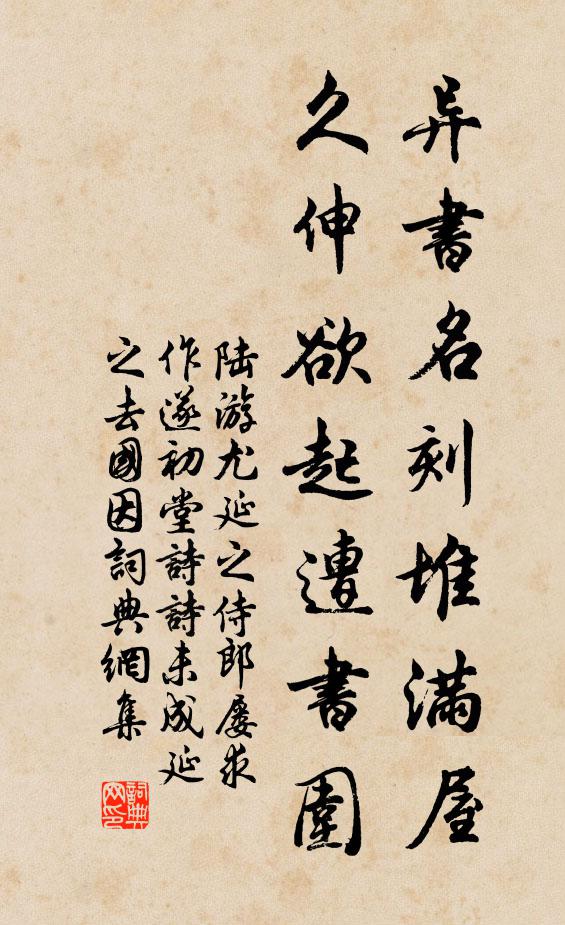 异書名刻堆滿屋
久伸欲起遭書圍
陆游尤延之侍郎屡求
作遂初堂詩詩未成延
之去國因詞典網集
詞典网印